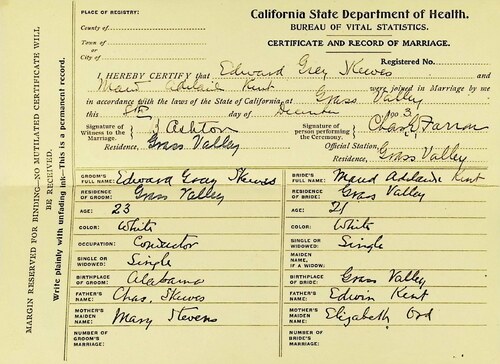 MARGIN RESERVED FOR BINDING—NO MUTILATED CERTIFICATE WILL
BE RECEIVED.
Write plainly with unfading ink—This is a permanent record.
PLACE OF REGISTRY:
County of
Town of
or
City of
California State Department of Health.
BUREAU OF VITAL STATISTICS.
CERTIFICATE AND RECORD OF MARRIAGE.
Registered No.
I HEREBY CERTIFY that Edward Grey Skewes and
Maud Adelaide Kent were joined in Marriage by me
in accordance with the laws of the State of California, at Grass Valley
this 8th day of December 190 3
Signature of Witness to the Marriage, } Ashton
Residence, Grass Valley
Signature of person performing the Ceremony, } Chas Farron
Official Station,
Residence, Grass Valley
GROOM'S FULL NAME: Edward Gray Skewes
BRIDE'S FULL NAME: Maud Adelaide Kent
RESIDENCE OF GROOM: Grass Valley
RESIDENCE OF BRIDE: Grass Valley
AGE: 23
AGE: 21
COLOR: White
COLOR: White
OCCUPATION: Conductor
SINGLE OR WIDOWED: Single
SINGLE OR WIDOWED: Single
MAIDEN NAME, IF A WIDOW:
BIRTHPLACE OF GROOM: Alabama
BIRTHPLACE OF BRIDE: Grass Valley
FATHER'S NAME: Chas. Skewes
FATHER'S NAME: Edwin Kent
MOTHER'S MAIDEN NAME: Mary Stevens
MOTHER'S MAIDEN NAME: Elizabeth Ord
NUMBER OF GROOM'S MARRIAGE:
NUMBER OF BRIDE'S MARRIAGE: